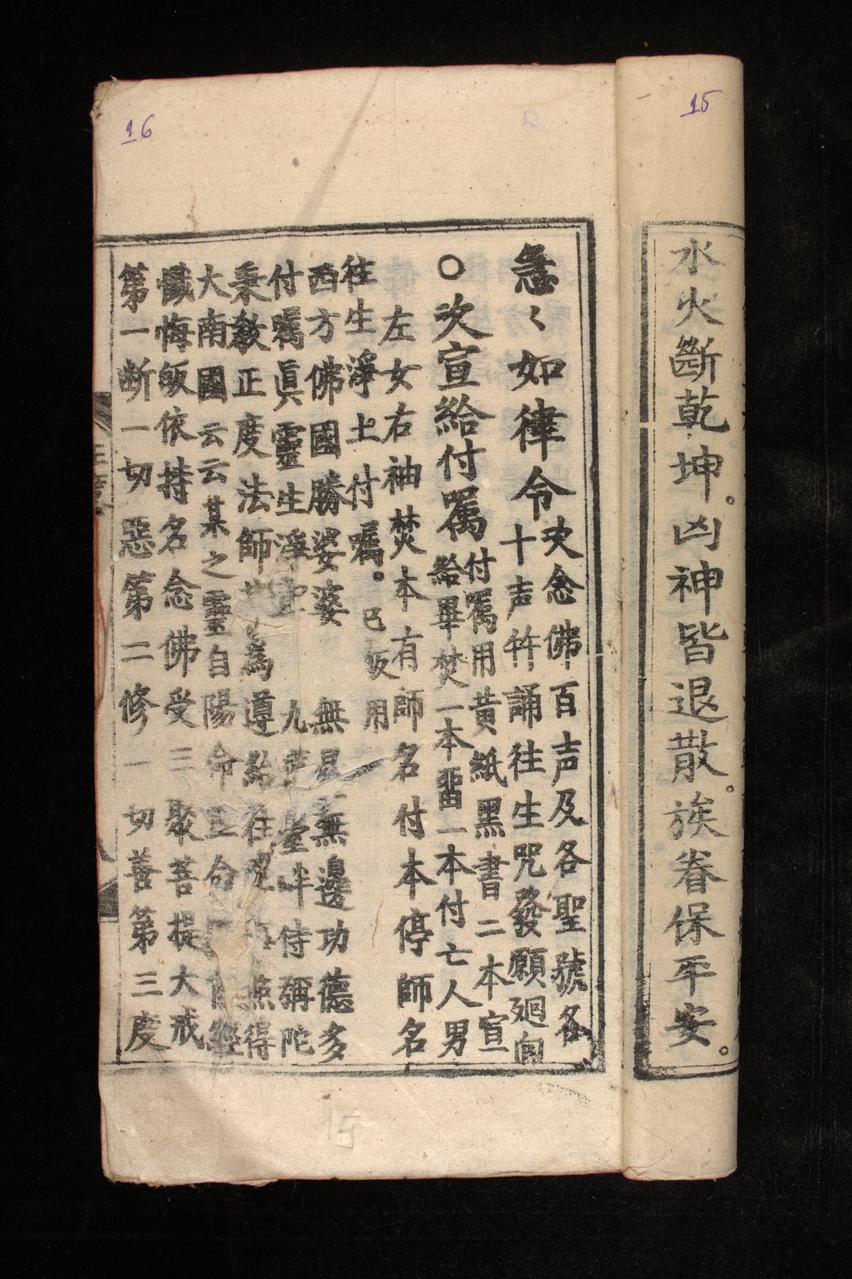 15
水火斷乾坤。凶神皆退散。族眷保平安。
16
急〻如律令
次念佛百声及各聖號各
十声并誦往生咒發願廻向
○次宣給付囑
付囑用黃紙黑書二本宣
給畢焚一本畱一本付亡人男
左女右袖焚本有師名付本停師名
往生淨土付囑。已皈用
西方佛國勝婆婆 無量無邊功德多
付囑真靈生淨 九 臺畔侍彌陀
秉教正度法師 爲遵
大南國云云某之靈自陽命 命
懺悔皈依持名念佛受三聚菩提大戒
第一断一切惡第二修一切善第三度